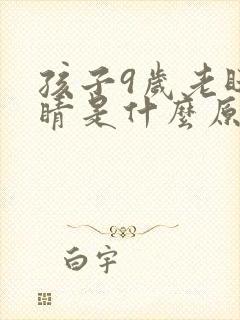 孩子9歲老眨
睛是什麼原
白宇